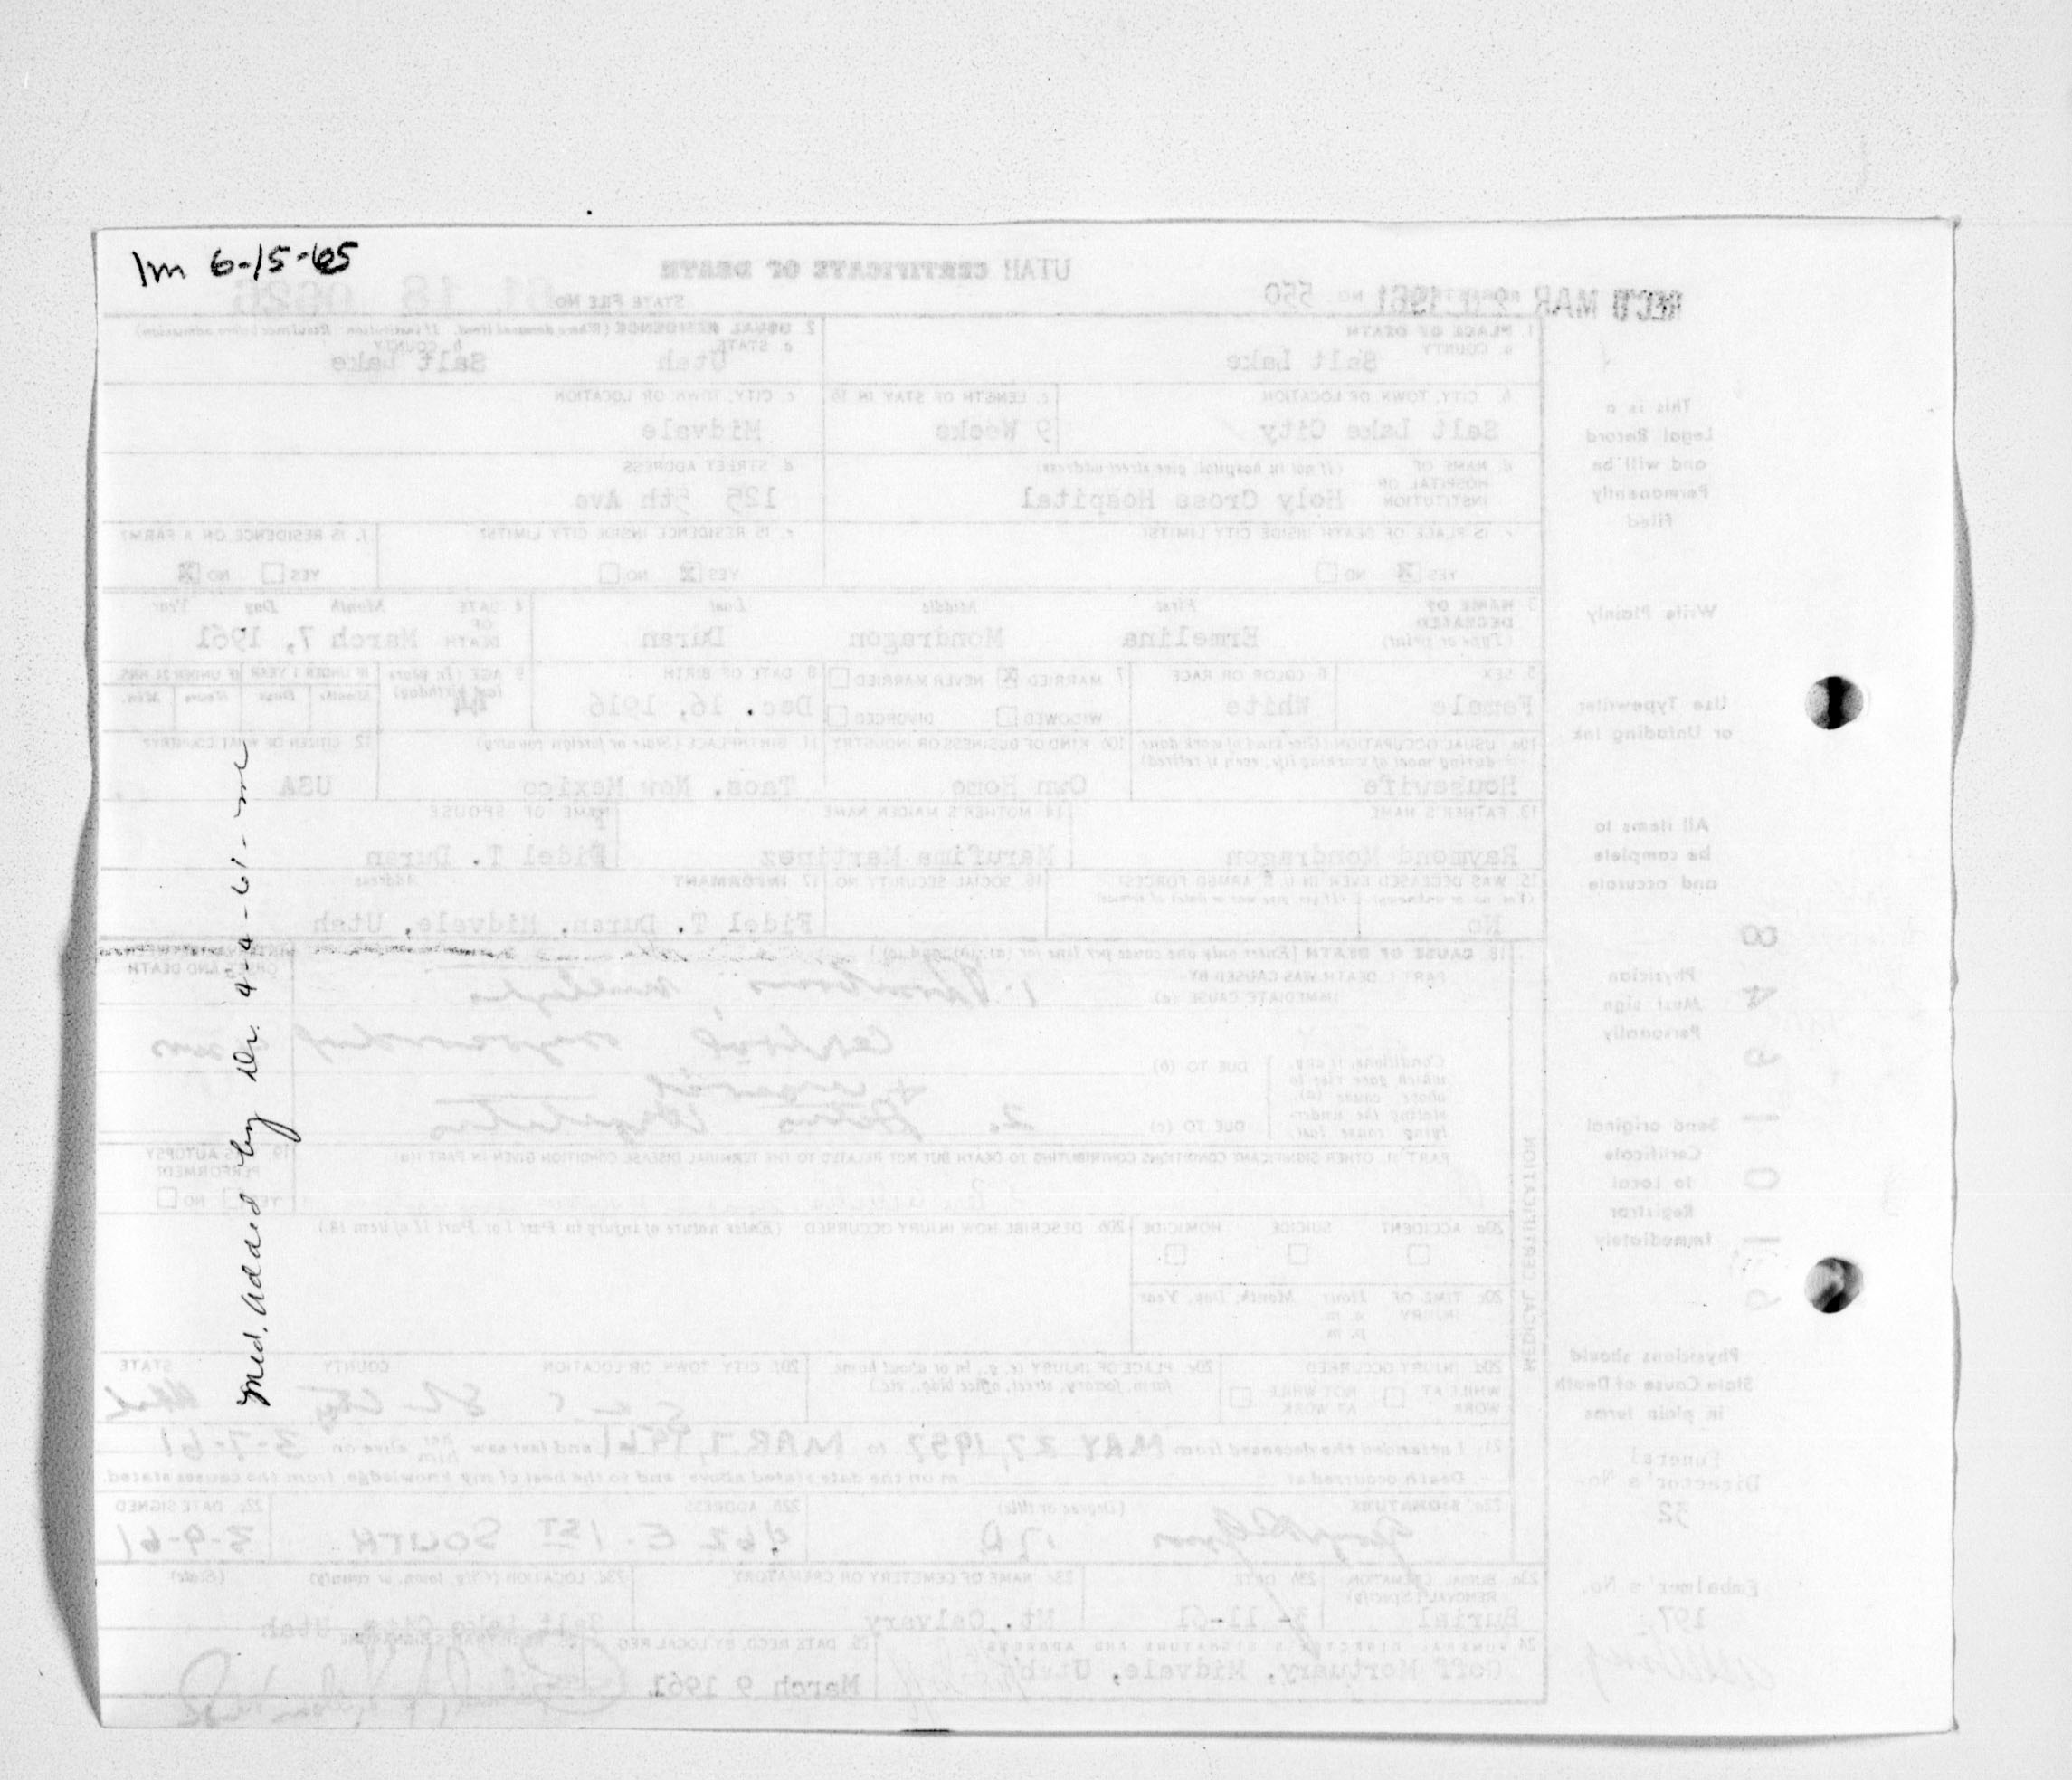 1m 6-15-65
Med. added by Dr. 4-4-61-
UTAH CERTIFICATE OF DEATH
REC'D MAR 1961
REGISTRAR'S NO. 550
STATE FILE NO. 61 18 0626
1. PLACE OF DEATH
a. COUNTY
Salt Lake
2. USUAL RESIDENCE (Where deceased lived. If institution: Residence before admission)
a. STATE
Utah
b. COUNTY
Salt Lake
b. CITY, TOWN OR LOCATION
Salt Lake City
c. LENGTH OF STAY IN 1b
9 Weeks
c. CITY, TOWN OR LOCATION
Midvale
d. NAME OF HOSPITAL OR INSTITUTION (If not in hospital, give street address)
Holy Cross Hospital
d. STREET ADDRESS
125 5th Ave
e. IS PLACE OF DEATH INSIDE CITY LIMITS?
YES X NO
e. IS RESIDENCE INSIDE CITY LIMITS?
YES X NO
f. IS RESIDENCE ON A FARM?
YES NO X
3. NAME OF DECEASED (Type or print)
First Middle Last
Ermelina Mondragon Duran
4. DATE OF DEATH Month Day Year
March 7, 1961
5. SEX
Female
6. COLOR OR RACE
White
7. MARRIED X NEVER MARRIED
WIDOWED DIVORCED
8. DATE OF BIRTH
Dec. 16, 1916
9. AGE (In years last birthday)
44
IF UNDER 1 YEAR IF UNDER 24 HRS.
Months Days Hours Min.
10a. USUAL OCCUPATION (Give kind of work done during most of working life, even if retired)
Housewife
10b. KIND OF BUSINESS OR INDUSTRY
Own Home
11. BIRTHPLACE (State or foreign country)
Taos, New Mexico
12. CITIZEN OF WHAT COUNTRY?
USA
13. FATHER'S NAME
Raymond Mondragon
14. MOTHER'S MAIDEN NAME
Marufima Martinez
NAME OF SPOUSE
Fidel T. Duran
15. WAS DECEASED EVER IN U. S. ARMED FORCES?
No
16. SOCIAL SECURITY NO.
17. INFORMANT Address
Fidel T. Duran, Midvale, Utah
18. CAUSE OF DEATH [Enter only one cause per line for (a), (b), and (c).]
PART I. DEATH WAS CAUSED BY:
IMMEDIATE CAUSE (a)
1. Thrombosis, multiple
cerebral
Conditions, if any, which gave rise to above cause (a), stating the underlying cause last.
DUE TO (b)
DUE TO (c)
2.
ONSET AND DEATH
PART II. OTHER SIGNIFICANT CONDITIONS CONTRIBUTING TO DEATH BUT NOT RELATED TO THE TERMINAL DISEASE CONDITION GIVEN IN PART I(a)
19. WAS AUTOPSY PERFORMED?
YES NO
20a. ACCIDENT SUICIDE HOMICIDE
20b. DESCRIBE HOW INJURY OCCURRED (Enter nature of injury in Part I or Part II of item 18.)
20c. TIME OF INJURY Hour Month, Day, Year
a. m.
p. m.
20d. INJURY OCCURRED
WHILE AT WORK NOT WHILE AT WORK
20e. PLACE OF INJURY (e. g., in or about home, farm, factory, street, office bldg., etc.)
20f. CITY, TOWN OR LOCATION COUNTY STATE
21. I attended the deceased from MAY 27, 1957, to MAR 7, 1961 and last saw her him alive on 3-7-61
Death occurred at m on the date stated above; and to the best of my knowledge, from the causes stated.
22a. SIGNATURE (Degree or title)
22b. ADDRESS
462 E. 1ST SOUTH
22c. DATE SIGNED
3-9-61
23a. BURIAL, CREMATION, REMOVAL (Specify)
Burial
23b. DATE
3-11-61
23c. NAME OF CEMETERY OR CREMATORY
Mt. Calvary
23d. LOCATION (City, town, or county) (State)
Salt Lake City, Utah
24. FUNERAL DIRECTOR'S SIGNATURE AND ADDRESS
Goff Mortuary, Midvale, Utah
25. DATE RECD. BY LOCAL REG.
March 9 1961
26. REGISTRAR'S SIGNATURE
MEDICAL CERTIFICATION
This is a
Legal Record
and will be
Permanently
filed
Write Plainly
Use Typewriter
or Unfading Ink
All items to
be complete
and accurate
Physician
Must sign
Personally
Send original
Certificate
to Local
Registrar
Immediately
Physicians should
State Cause of Death
in plain terms
Funeral
Director's No.
32
Embalmer's No.
197